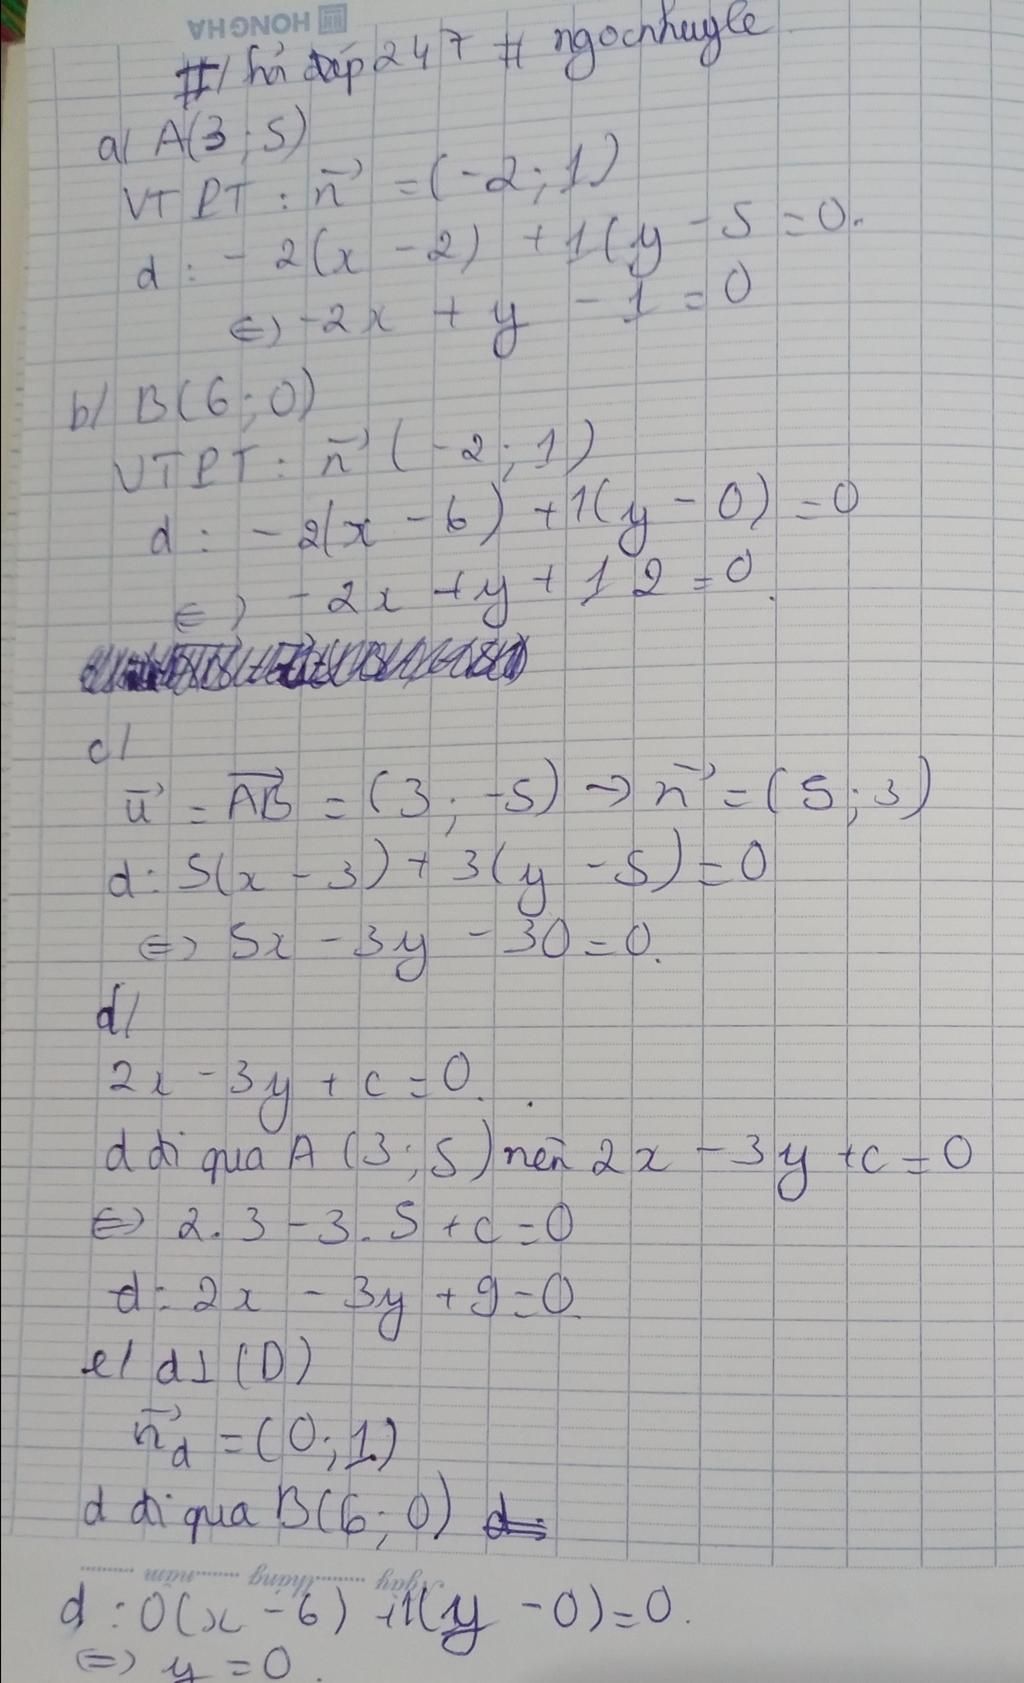 HONG HA
# hỏi đáp 247 # ngocnhuyle
a/ A(3; 5)
VTPT: n⃗ = (-2; 1)
d: -2(x - 2) + 1(y - 5 = 0.
⇔ -2x + y - 1 = 0
b/ B(6; 0)
VTPT: n⃗ (-2; 1)
d: -2(x - 6) + 1(y - 0) = 0
⇔ -2x + y + 12 = 0.
c/
u⃗ = AB⃗ = (3; -5) → n⃗ = (5; 3)
d: 5(x - 3) + 3(y - 5) = 0
⇔ 5x - 3y - 30 = 0.
d/
2x - 3y + c = 0.
d đi qua A (3; 5) nên 2x - 3y + c = 0
⇔ 2.3 - 3.5 + c = 0
d: 2x - 3y + 9 = 0.
e/ d⊥(D)
n⃗d = (0; 1)
d đi qua B(6; 0) d:
Ngày ........ tháng ........ năm ........
d: 0(x - 6) + 1(y - 0) = 0.
⇔ y = 0.